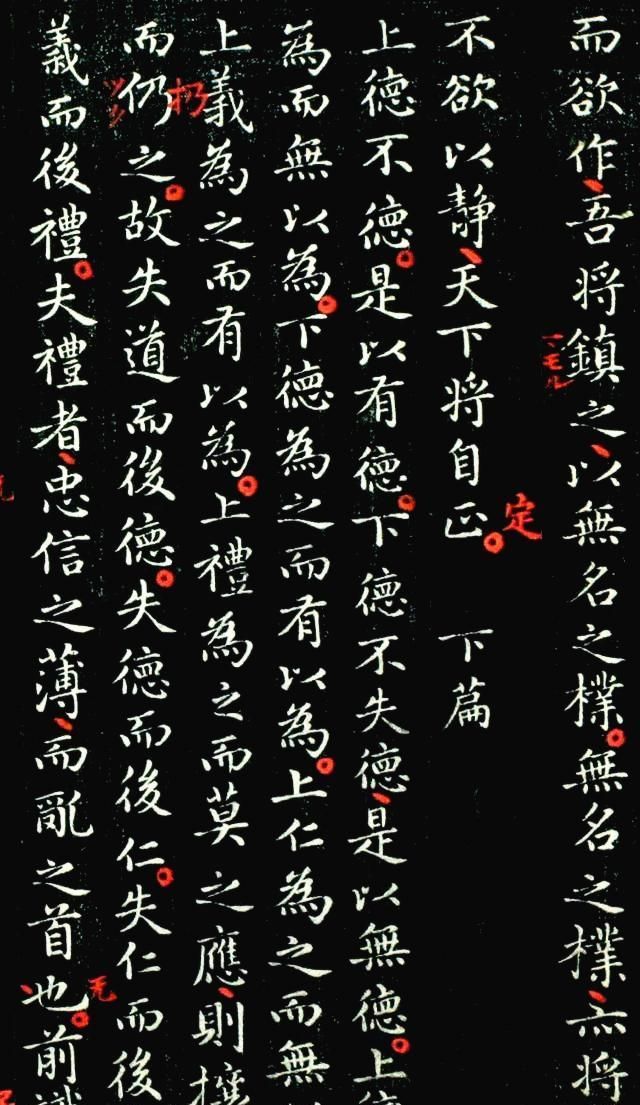 而欲作、吾将鎮之、以無名之樸。無名之樸、亦将
不欲以靜、天下将自正。下篇
定
上德不德。是以有德。下德不失德、是以無德。上德
為而無以為。下德為之而有以為。上仁為之而無
上義為之而有以為。上禮為之而莫之應、則攘
扔
而仍之。故失道而後德。失德而後仁。失仁而後
无
義而後禮。夫禮者、忠信之薄、而亂之首也。前識